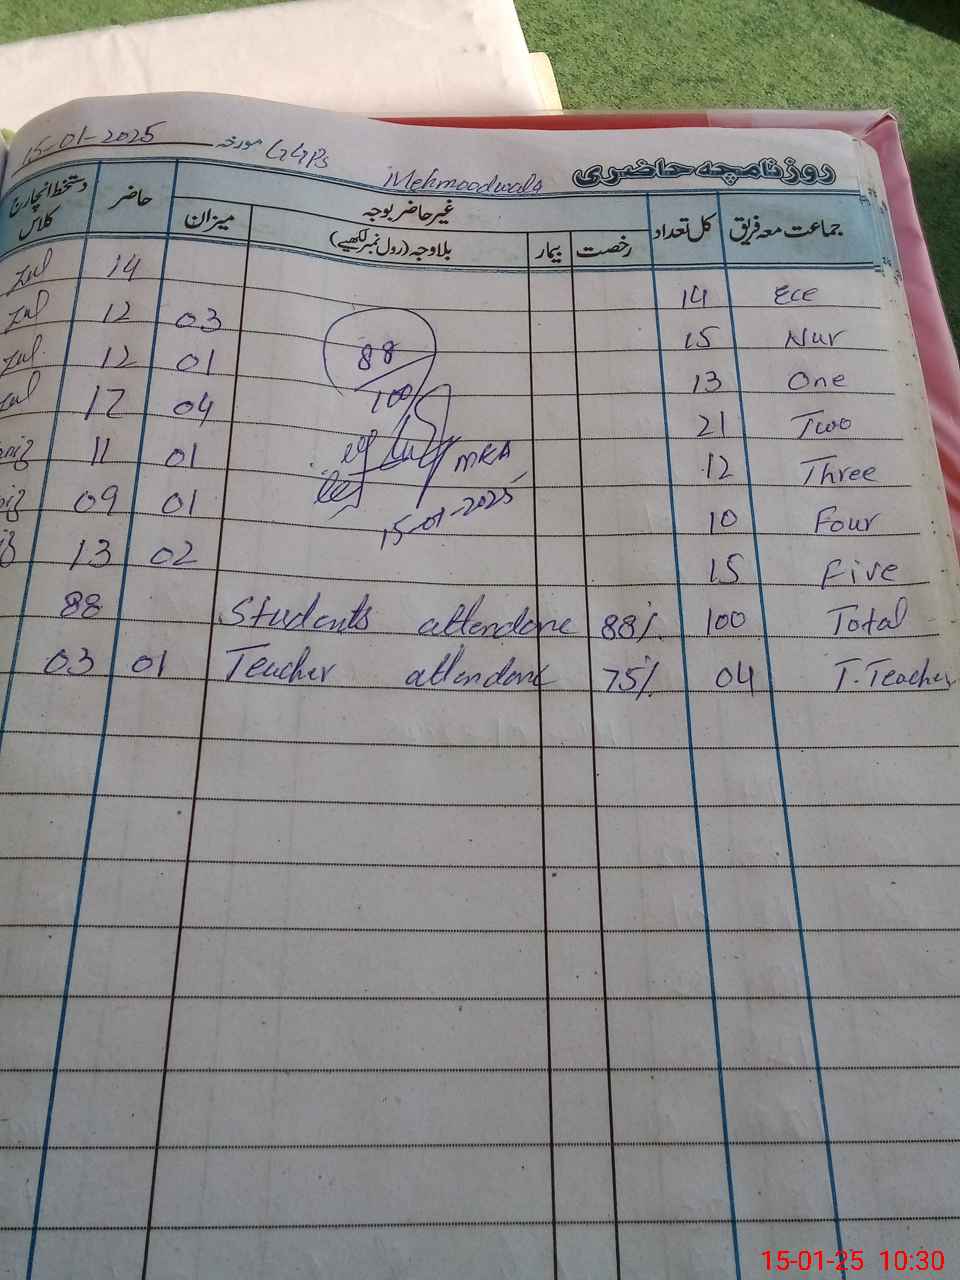 15-01-2025 مورخہ GGPS Mehmoodwala روزنامچہ حاضری
جماعت معہ فریق کل تعداد غیر حاضر بوجہ حاضر دستخط انچارج کلاس
رخصت بیمار بلاوجہ (رول نمبر لکھیے) میزان
Ece 14 14
Nur 15 03 12
One 13 01 12
Two 21 04 17
Three 12 01 11
Four 10 01 09
Five 15 02 13
88
100
MEA
15-01-2025
Total 100 88% Students attendane 88
T.Teacher 04 75% Teacher attendane 01 03
15-01-25 10:30